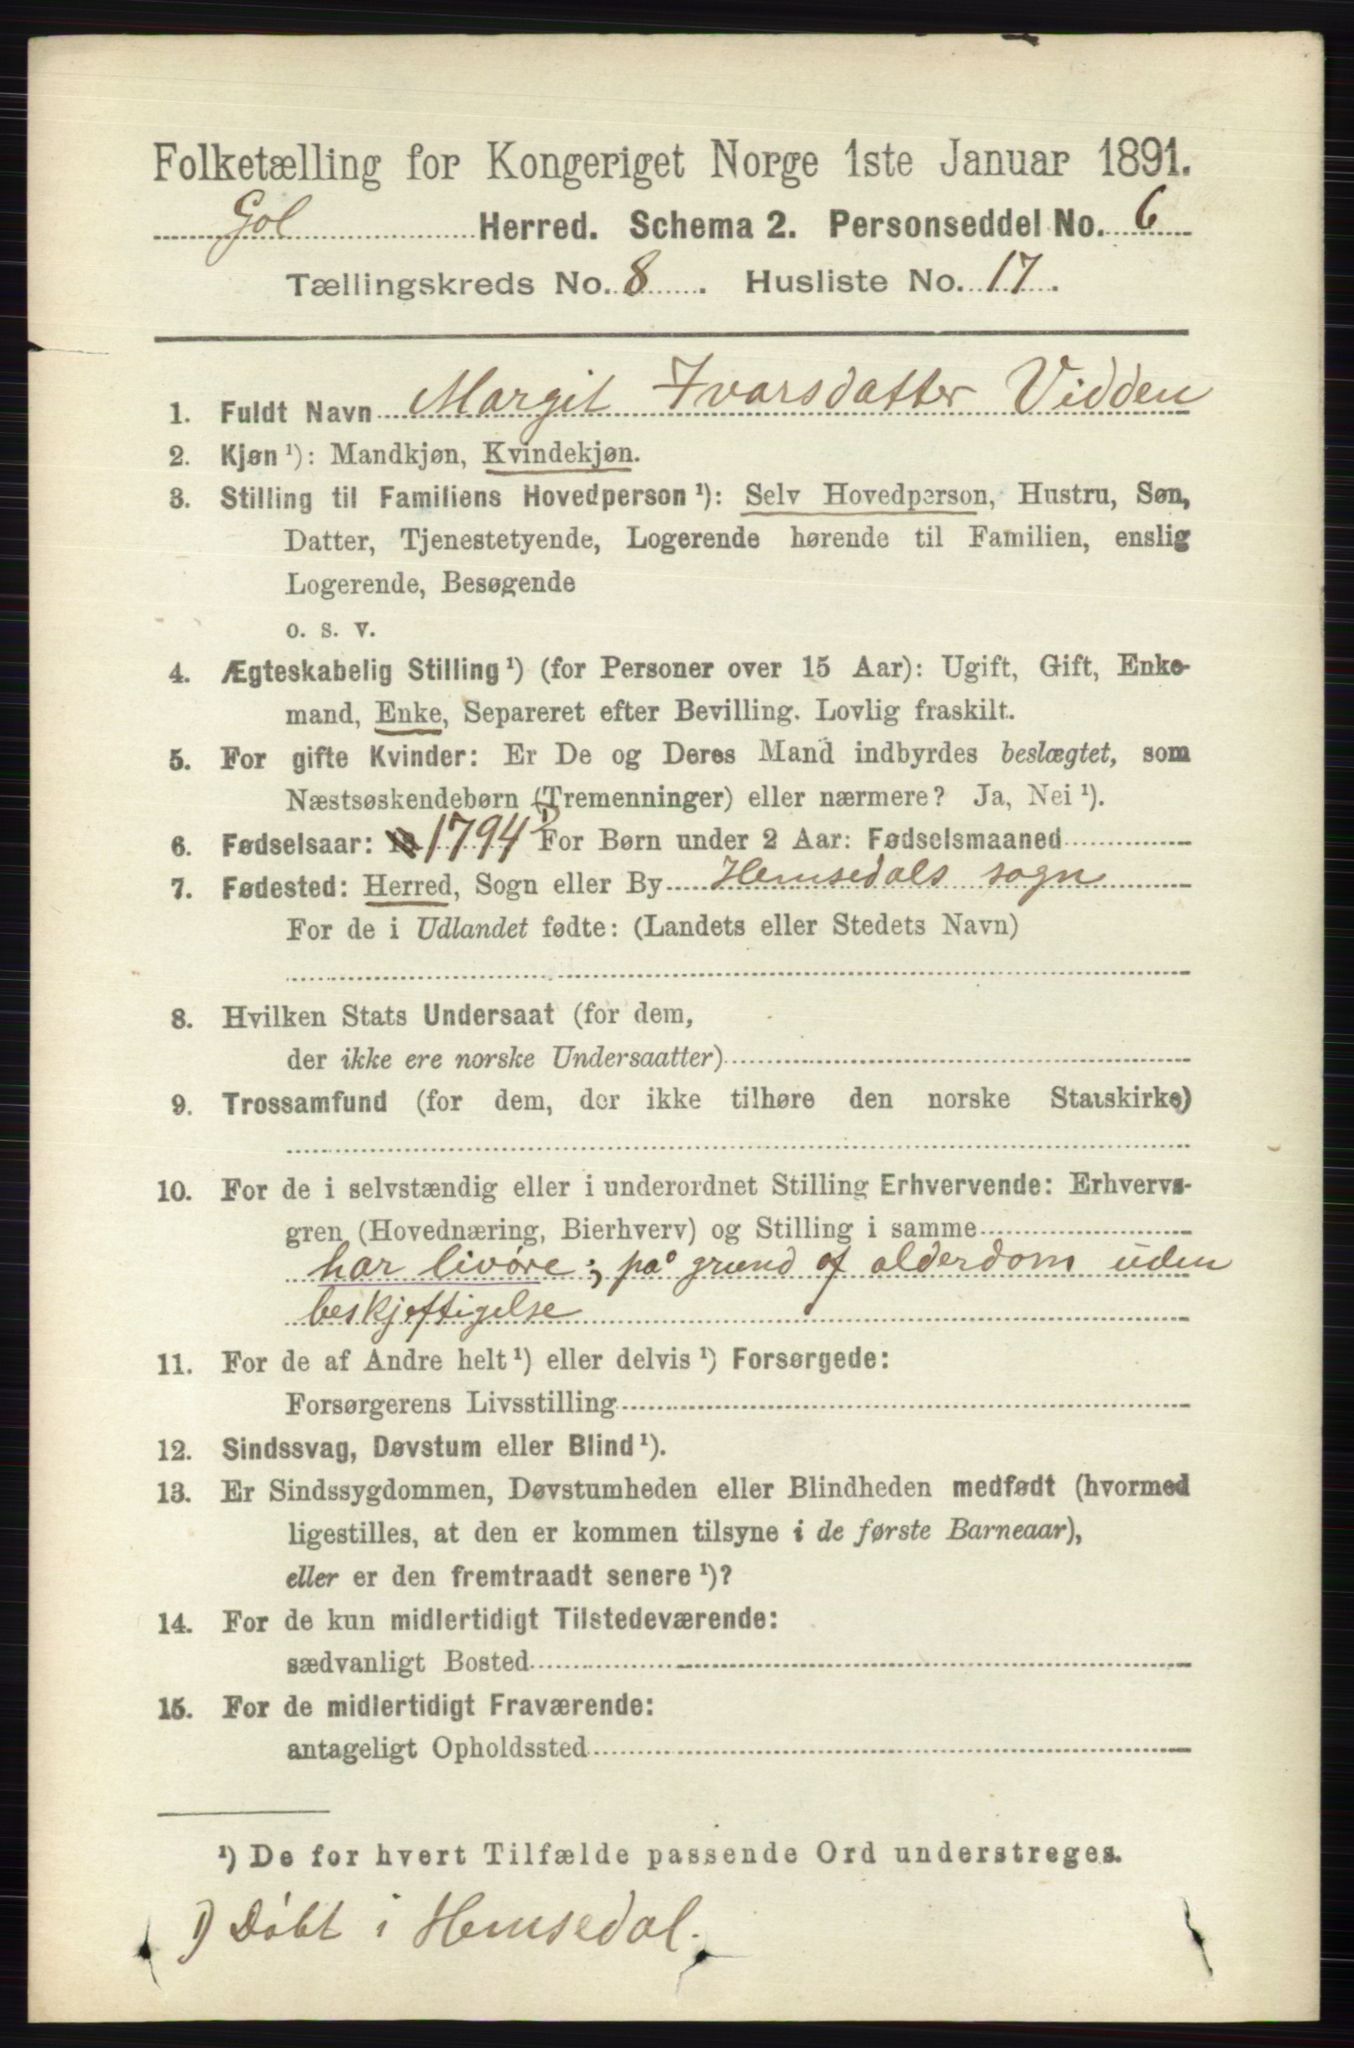 Folketælling for Kongeriget Norge 1ste Januar 1891.
Gol Herred. Schema 2. Personseddel No. 6
Tællingskreds No. 8. Husliste No. 17.
1. Fuldt Navn Margit Ivarsdatter Vidden
2. Kjøn¹): Mandkjøn, Kvindekjøn.
3. Stilling til Familiens Hovedperson¹): Selv Hovedperson, Hustru, Søn,
Datter, Tjenestetyende, Logerende hørende til Familien, enslig
Logerende, Besøgende
o. s. v.
4. Ægteskabelig Stilling¹) (for Personer over 15 Aar): Ugift, Gift, Enke-
mand, Enke, Separeret efter Bevilling. Lovlig fraskilt.
5. For gifte Kvinder: Er De og Deres Mand indbyrdes beslægtet, som
Næstsøskendebørn (Tremenninger) eller nærmere? Ja, Nei¹).
6. Fødselsaar: 18 1794 1) For Børn under 2 Aar: Fødselsmaaned
7. Fødested: Herred, Sogn eller By Hemsedals sogn
For de i Udlandet fødte: (Landets eller Stedets Navn)
8. Hvilken Stats Undersaat (for dem,
der ikke ere norske Undersaatter)
9. Trossamfund (for dem, der ikke tilhøre den norske Statskirke)
10. For de i selvstændig eller i underordnet Stilling Erhvervende: Erhvervs-
gren (Hovednæring, Bierhverv) og Stilling i samme
har livøre; på grund af alderdom uden
beskjeftigelse
11. For de af Andre helt¹) eller delvis¹) Forsørgede:
Forsørgerens Livsstilling
12. Sindssvag, Døvstum eller Blind¹).
13. Er Sindssygdommen, Døvstumheden eller Blindheden medfødt (hvormed
ligestilles, at den er kommen tilsyne i de første Barneaar),
eller er den fremtraadt senere¹)?
14. For de kun midlertidigt Tilstedeværende:
sædvanligt Bosted
15. For de midlertidigt Fraværende:
antageligt Opholdssted
¹) De for hvert Tilfælde passende Ord understreges.
1) Døbt i Hemsedal.